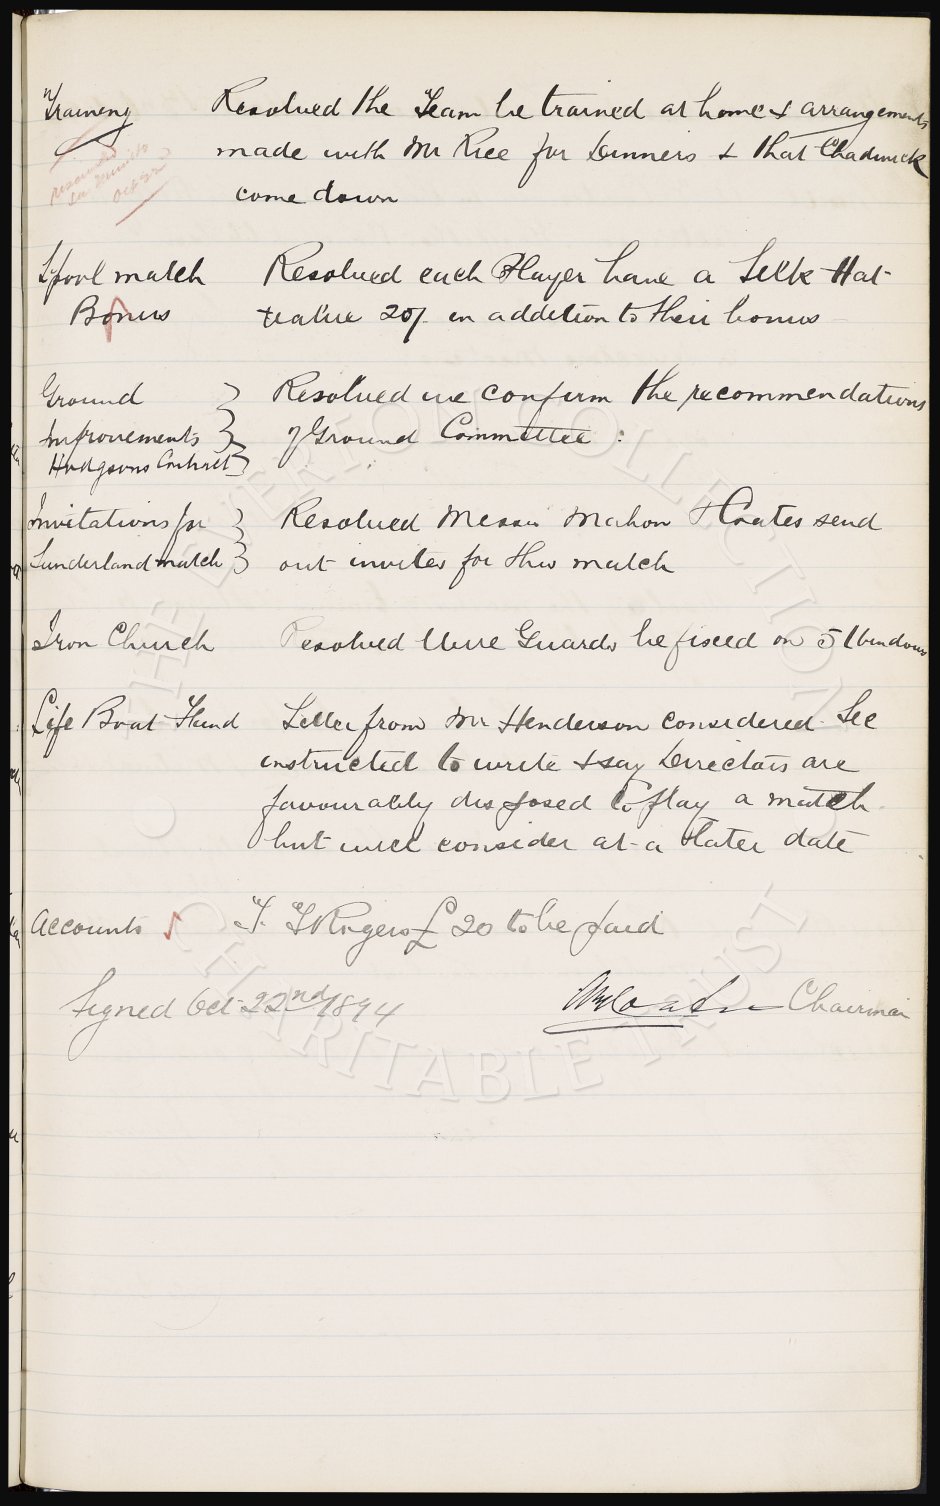 Training Resolved the Team be trained at home & arrangements
made with Mr Rice for Dinners & that Chadwick
come down
rescinded
see minute
Oct 22
L'pool match Resolved each Player have a Silk Hat
Bonus value 20/- in addition to their bonus
Ground Resolved we confirm the recommendations
Improvements of Ground Committee :
Hodgsons Contract
Invitations for Resolved Messrs Mahon & Coates send
Sunderland match out invites for this match
Iron Church Resolved Wire Guards be fixed on 5 Windows
Life Boat Fund Letter from Mr Henderson considered. Sec
instructed to write & say Directors are
favourably disposed to play a match
but will consider at a later date
Accounts T. G Rogers £20 to be paid
Signed Oct 22nd 1894 Chairman
THE EVERTON COLLECTION
CHARITABLE TRUST